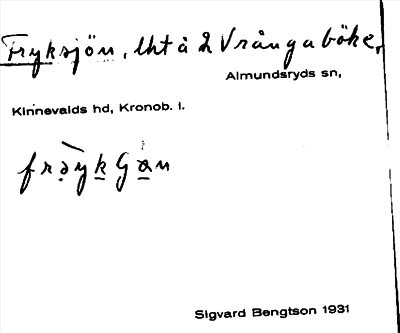 Fryksjön, lht å 2 Vrångaböke,
Almundsryds sn,
Kinnevalds hd, Kronob. l.
Sigvard Bengtson 1931